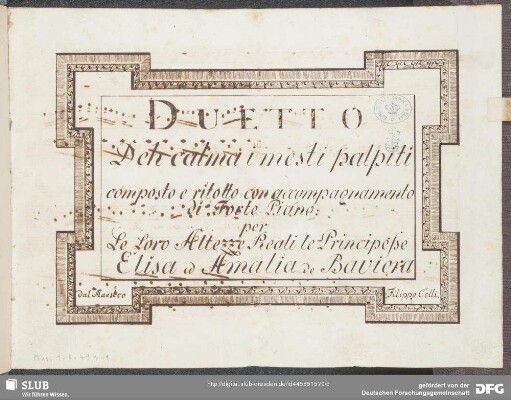 DUETTO
Deh calma i mesti palpiti
composto e ridotto con accompagnamento
di Forte Piano:
per
Le Loro Altezze Reali le Principesse
Elisa ed Amalia de Baviera
dal Maestro
Filippo Celli.
SLUB
Wir führen Wissen.
gefördert von der
Deutschen Forschungsgemeinschaft
DFG